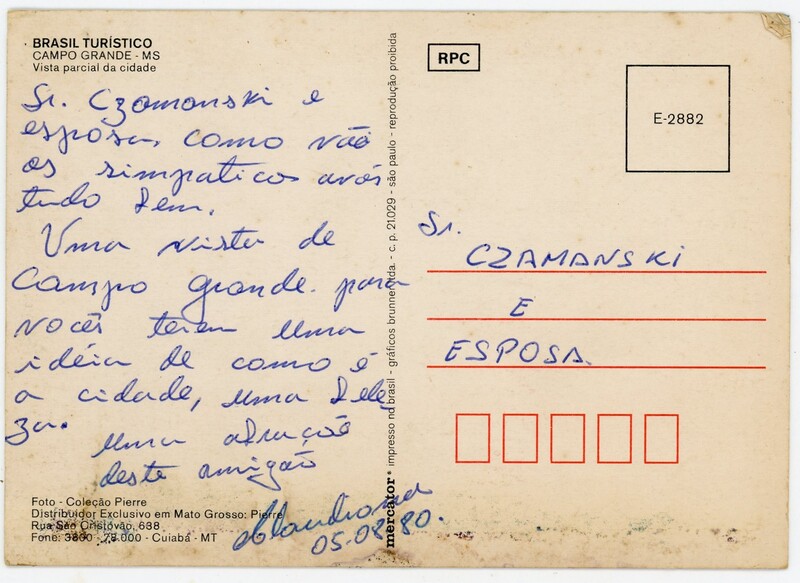 BRASIL TURÍSTICO
CAMPO GRANDE - MS
Vista parcial da cidade
Sr. Czamanski e
esposa, como vão
os simpaticos avós
tudo bem.
Uma vista de
Campo Grande para
vocês terem uma
idéia de como é
a cidade, uma bele
za.
uma abração
deste amigão
05-08-80.
Foto - Coleção Pierre
Distribuidor Exclusivo em Mato Grosso: Pierre
Rua São Cristóvão, 638
Fone: 3800 - 78.000 - Cuiabá - MT
mercator. impresso no brasil - gráficos brunner ltda. - c. p. 21.029 - são paulo - reprodução proibida
RPC
E-2882
Sr.
CZAMANSKI
E
ESPOSA.